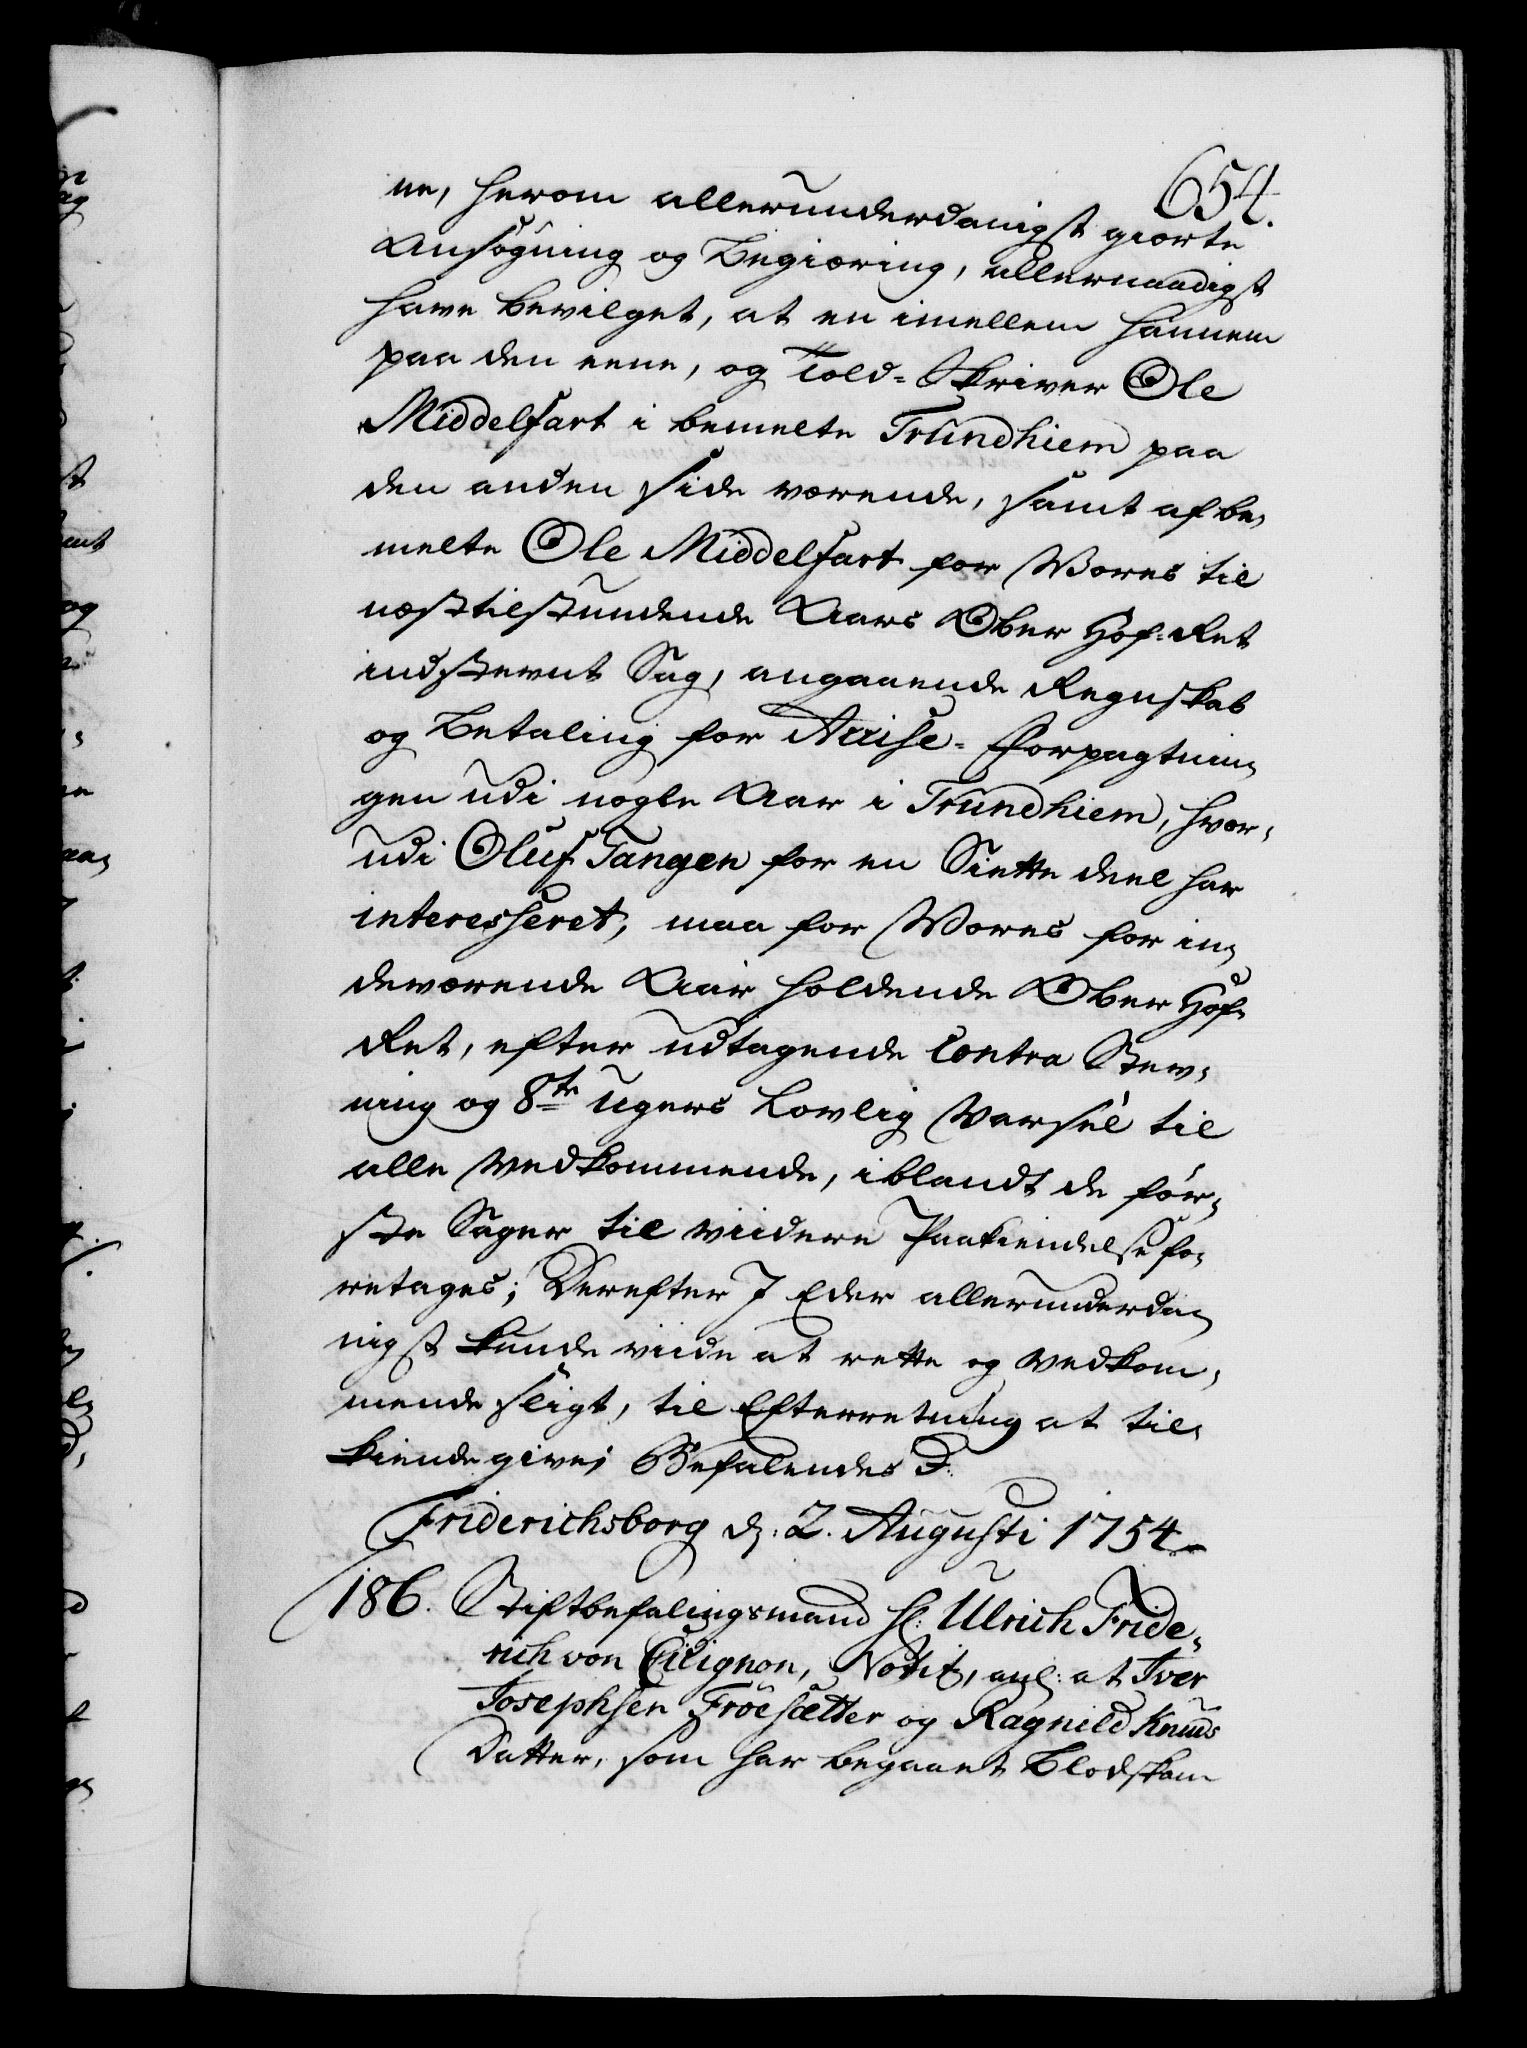 654.
ne, herom allerunderdanigst giorte
Ansøgning og Begiæring, allernaadigst
have bevilget, at en imellem hannem
paa den eene, og Told-Skriver Ole
Middelfart i bemelte Trundhiem paa
den anden side værende, samt af be-
melte Ole Middelfart for Vores til
næsttilstundende Aars Ober Hof-Ret
indstevnt Sag, angaaende Regnskab
og Betaling for Accise-Forpagtnin-
gen udi nogle Aar i Trundhiem, hvor-
udi Oluf Tangen for en Siette deel har
interesseret, maa for Vores for in-
deværende Aar holdende Ober Hof-
Ret, efter udtagende Contra Stev-
ning og 8te Ugers Lovlig Varsel til
alle Vedkommende, iblandt de før-
ste Sager til viidere Paakiendelse fo-
retages; Derefter I Eder allerunderda-
nigst kunde viide at rette og vedkom-
mende sligt, til Efterretning at til-
kiende give; Befalendes D:
Friderichsborg d: 2. Augusti 1754
186. Stiftbefalingsmand H: Ulrich Fride-
rich von Cicignon, Notit, anl: at Iver
Josephsen Frøesætter og Ragnild Knuds
Datter, som har begaaet Blodskam